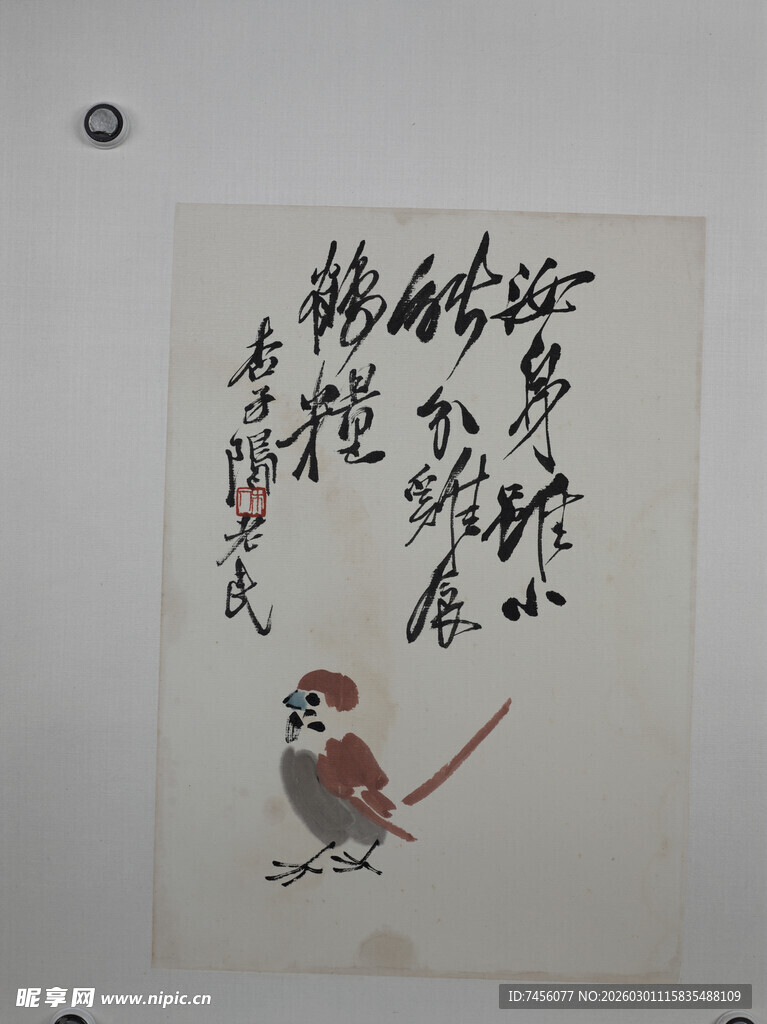 汝身雖小
能分雞食
鶴糧
杏子隝
老民
昵享网 www.nipic.cn
ID:7456077 NO:20260301115835488109